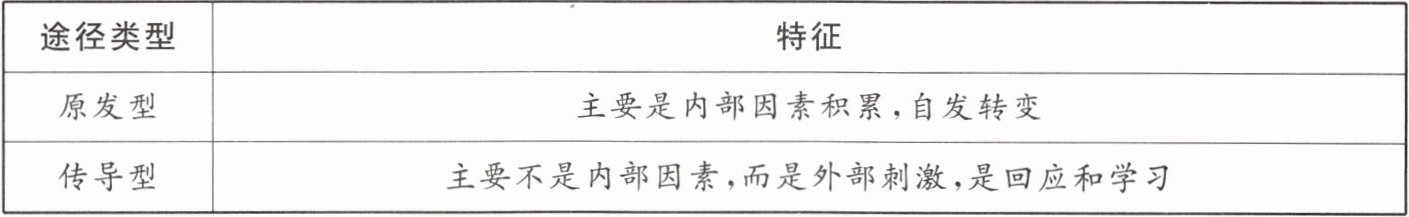 途径类型 特征
原发型 主要是内部因素积累,自发转变
传导型 主要不是内部因素,而是外部刺激,是回应和学习